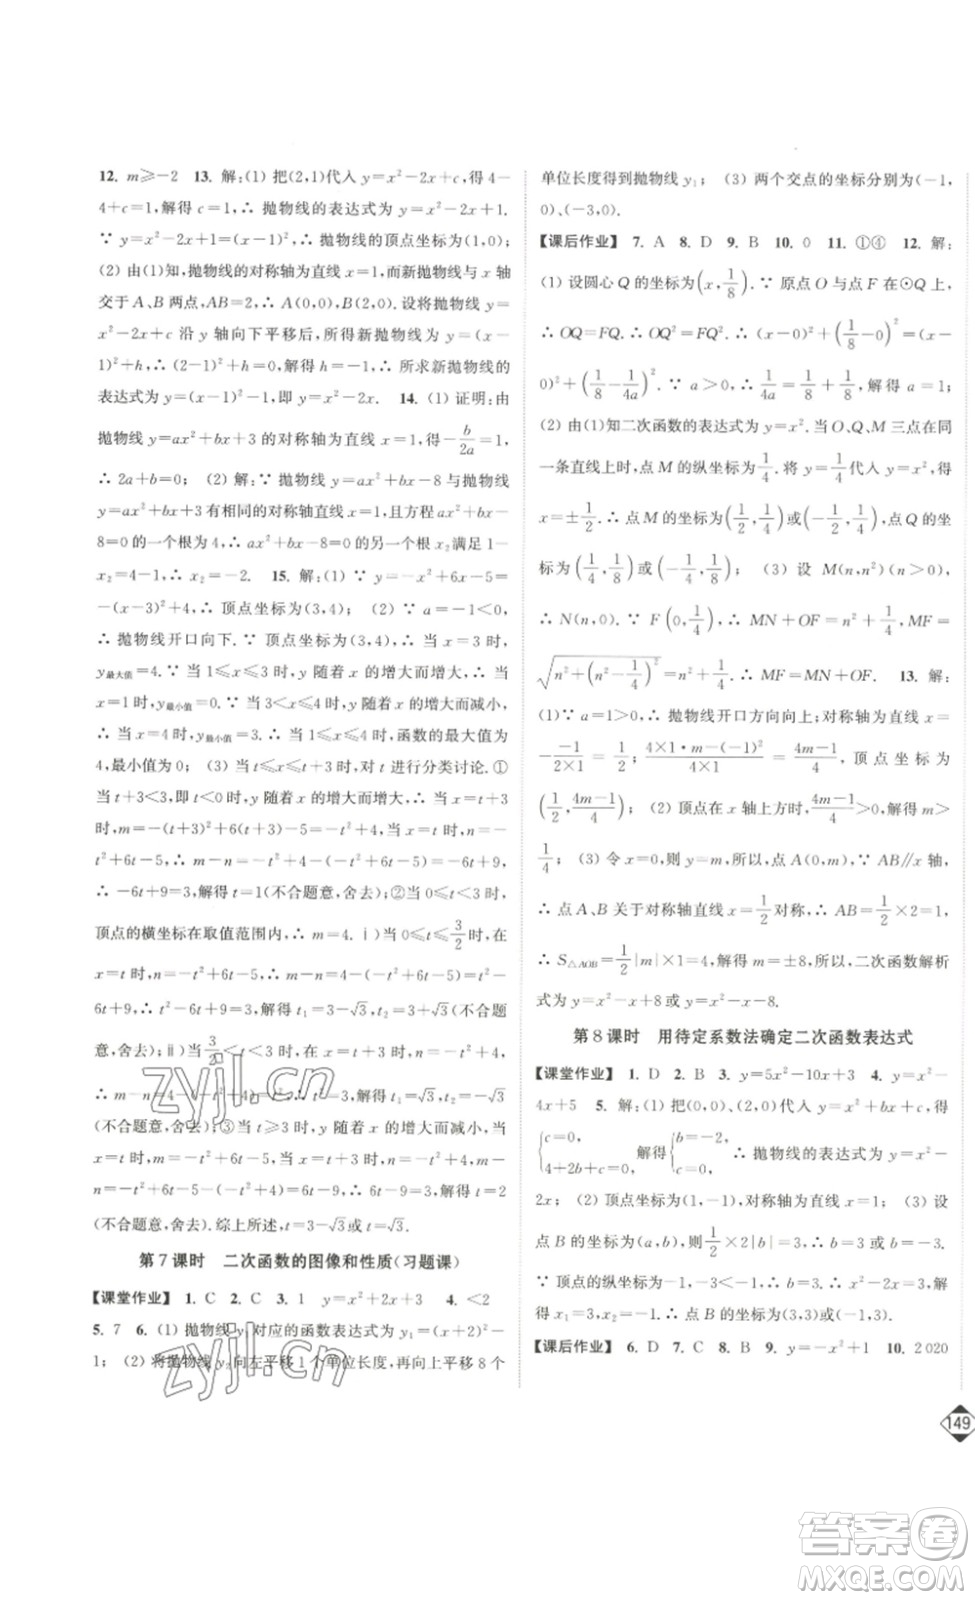 12. m≥-2 13. 解:(1) 把(2,1)代入 y=x²-2x+c,得 4-
4+c=1,解得 c=1,∴ 抛物线的表达式为 y=x²-2x+1.
∵ y=x²-2x+1=(x-1)²,∴ 抛物线的顶点坐标为(1,0);
(2) 由(1)知,抛物线的对称轴为直线 x=1,而新抛物线与 x 轴
交于 A、B 两点,AB=2,∴ A(0,0),B(2,0). 设将抛物线 y=
x²-2x+c 沿 y 轴向下平移后,所得新抛物线为 y=(x-
1)²+h,∴ (2-1)²+h=0,解得 h=-1,∴ 所求新抛物线的
表达式为 y=(x-1)²-1,即 y=x²-2x. 14. (1) 证明:由
抛物线 y=ax²+bx+3 的对称轴为直线 x=1,得-b/2a=1,
∴ 2a+b=0; (2) 解:∵ 抛物线 y=ax²+bx-8 与抛物线
y=ax²+bx+3 有相同的对称轴直线 x=1,且方程 ax²+bx-
8=0 的一个根为 4,∴ ax²+bx-8=0 的另一个根 x₂满足 1-
x₂=4-1,∴ x₂=-2. 15. 解:(1) ∵ y=-x²+6x-5=
-(x-3)²+4,∴ 顶点坐标为(3,4); (2) ∵ a=-1<0,
∴ 抛物线开口向下. ∵ 顶点坐标为(3,4),∴ 当 x=3 时,
y最大值=4. ∵ 当 1≤x≤3 时,y 随着 x 的增大而增大,∴ 当
x=1 时,y最小值=0. ∵ 当 3<x≤4 时,y 随着 x 的增大而减小,
∴ 当 x=4 时,y最小值=3. ∴ 当 1≤x≤4 时,函数的最大值为
4,最小值为 0; (3) 当 t≤x≤t+3 时,对 t 进行分类讨论. ①
当 t+3<3,即 t<0 时,y 随着 x 的增大而增大,∴ 当 x=t+3
时,m=-(t+3)²+6(t+3)-5=-t²+4,当 x=t 时,n=
-t²+6t-5,∴ m-n=-t²+4-(-t²+6t-5)=-6t+9,
∴ -6t+9=3,解得 t=1(不合题意,舍去);②当 0≤t<3 时,
顶点的横坐标在取值范围内,∴ m=4. ⅰ) 当 0≤t≤3/2时,在
x=t 时,n=-t²+6t-5,∴ m-n=4-(-t²+6t-5)=t²-
6t+9,∴ t²-6t+9=3,解得 t₁=3-√3,t₂=3+√3(不合题
意,舍去);ⅱ) 当3/2<t<3 时,在 x=t+3 时,n=-t²+4,
∴ m-n=4-(-t²+4)=t²,∴ t²=3,解得 t₁=√3,t₂=-√3
(不合题意,舍去);③当 t≥3 时,y 随着 x 的增大而减小,当
x=t 时,m=-t²+6t-5,当 x=t+3 时,n=-t²+4,∴ m-
n=-t²+6t-5-(-t²+4)=6t-9,∴ 6t-9=3,解得 t=2
(不合题意,舍去). 综上所述,t=3-√3或√3.
第 7 课时 二次函数的图像和性质(习题课)
【课堂作业】 1. C 2. C 3. 1 y=x²+2x+3 4. <2
5. 7 6. (1) 抛物线 y₁对应的函数表达式为 y₁=(x+2)²-
1; (2) 将抛物线 y₂向左平移 1 个单位长度,再向上平移 8 个
单位长度得到抛物线 y₁; (3) 两个交点的坐标分别为(-1,
0)、(-3,0).
【课后作业】 7. A 8. D 9. B 10. 0 11. ①④ 12. 解:
(1) 设圆心 Q 的坐标为(x,1/8). ∵ 原点 O 与点 F 在⊙Q 上,
∴ OQ=FQ. ∴ OQ²=FQ². ∴ (x-0)²+(1/8-0)²=(x-
0)²+(1/8-1/4a)². ∵ a>0,∴ 1/4a=1/8+1/8,解得 a=1;
(2) 由(1)知二次函数的表达式为 y=x². 当 O、Q、M 三点在同
一条直线上时,点 M 的纵坐标为1/4. 将 y=1/4代入 y=x²,得
x=±1/2. ∴ 点 M 的坐标为(1/2,1/4)或(-1/2,1/4),点 Q 的坐
标为(1/4,1/8)或(-1/4,1/8); (3) 设 M(n,n²)(n>0),
∴ N(n,0). ∵ F(0,1/4),∴ MN+OF=n²+1/4,MF=
√(n²+(n²-1/4)²)=n²+1/4,∴ MF=MN+OF. 13. 解:
(1)∵ a=1>0,∴ 抛物线开口方向向上;对称轴为直线 x=
-(-1)/(2×1)=1/2; ∵ (4×1·m-(-1)²)/(4×1)=(4m-1)/4,∴ 顶点坐标为
(1/2,(4m-1)/4); (2) ∵ 顶点在 x 轴上方时,(4m-1)/4>0,解得 m>
1/4; (3) 令 x=0,则 y=m,所以点 A(0,m). ∵ AB∥x 轴,
∴ 点 A、B 关于对称轴直线 x=1/2对称,∴ AB=1/2×2=1,
∴ S△AOB=1/2|m|×1=4,解得 m=±8,所以,二次函数解析
式为 y=x²-x+8 或 y=x²-x-8.
第 8 课时 用待定系数法确定二次函数表达式
【课堂作业】 1. D 2. B 3. y=5x²-10x+3 4. y=x²-
4x+5 5. 解:(1) 把(0,0)、(2,0)代入 y=x²+bx+c,得
{c=0, 4+2b+c=0, 解得{b=-2, c=0, ∴ 抛物线的表达式为 y=x²-
2x; (2) 顶点坐标为(1,-1),对称轴为直线 x=1; (3) 设
点 B 的坐标为(a,b),则1/2×2|b|=3,∴ b=3 或 b=-3.
∵ 顶点的纵坐标为-1,-3<-1,∴ b=3. ∴ x²-2x=3,解
得 x₁=3,x₂=-1. ∴ 点 B 的坐标为(3,3)或(-1,3).
【课后作业】 6. D 7. C 8. B 9. y=-x²+1 10. 2 020
149
zyjl.cn
zyjl.cn
答案卷
MXQE.COM